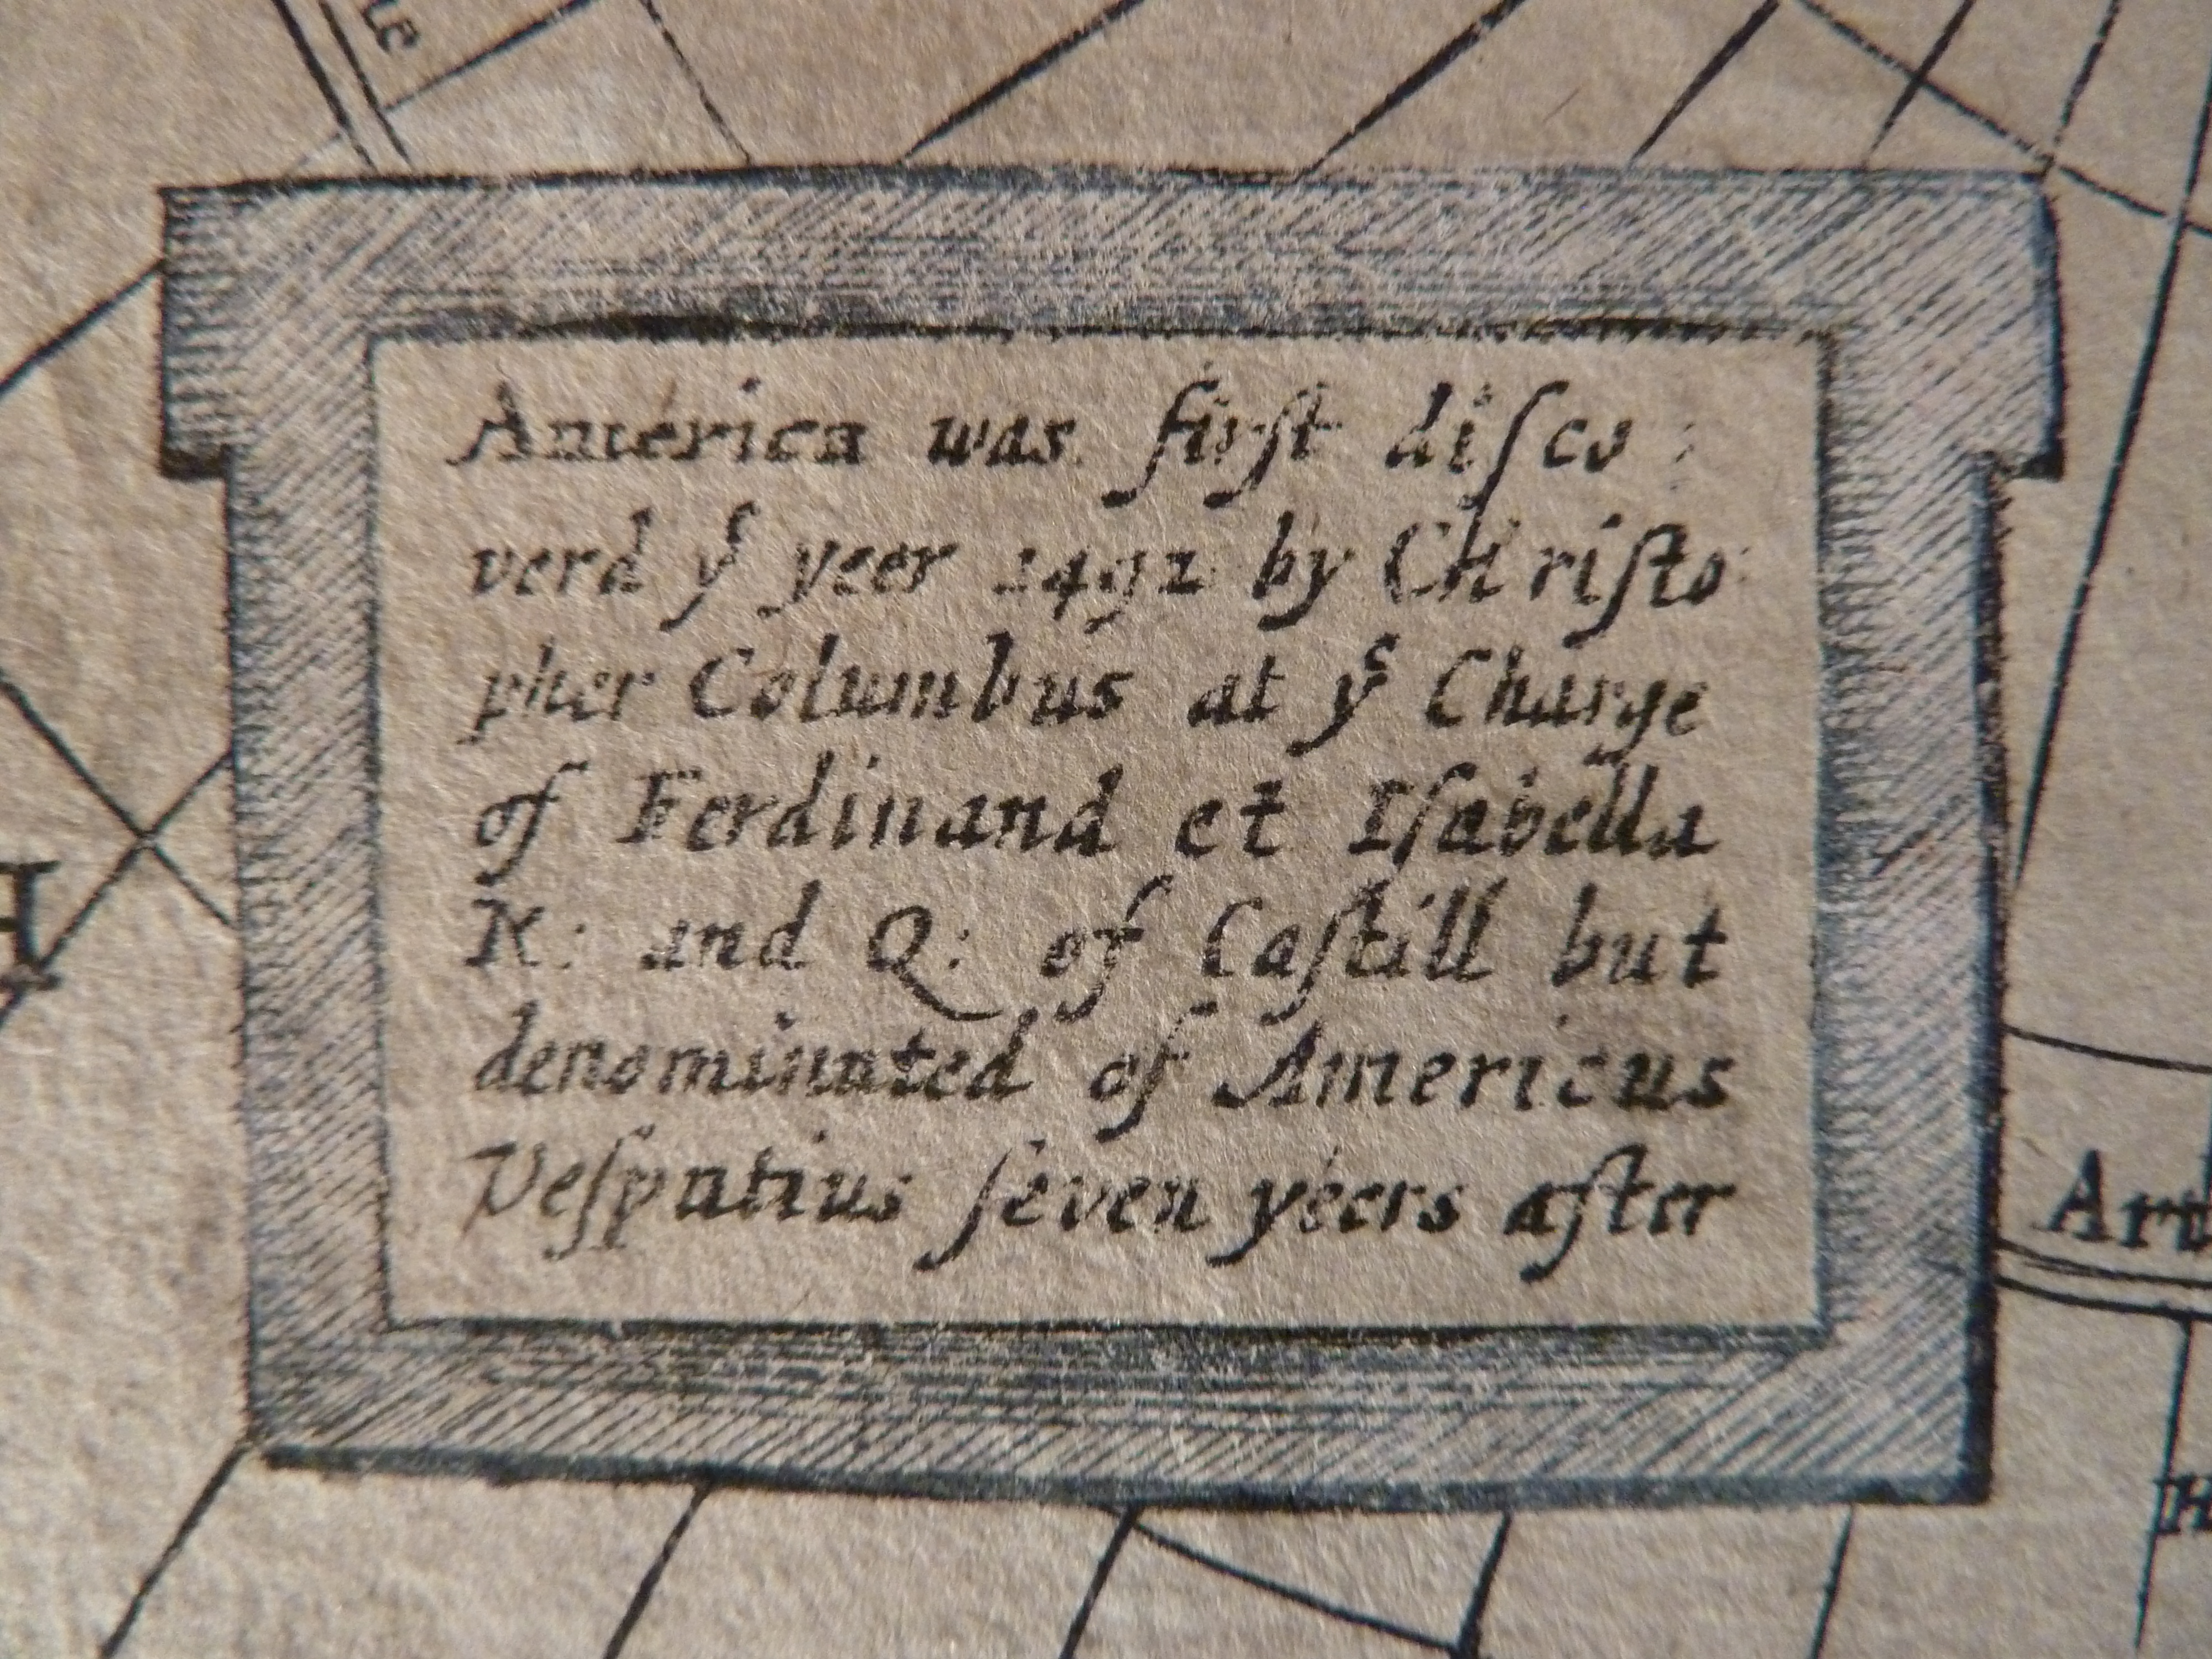 America was firſt diſco:
verd yͤ yeer 1492 by CHriſto
pher Columbus at yͤ Charge
of Ferdinand et Iſabella
K: and Q: of Caſtill but
denominated of Americus
Veſputius ſeven yeers aſter